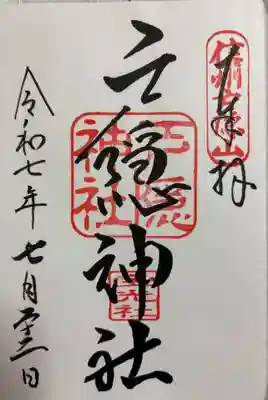 奉拝
信州戸隠山
戸隠神社
戸隠神社
宝光社
令和七年七月 日